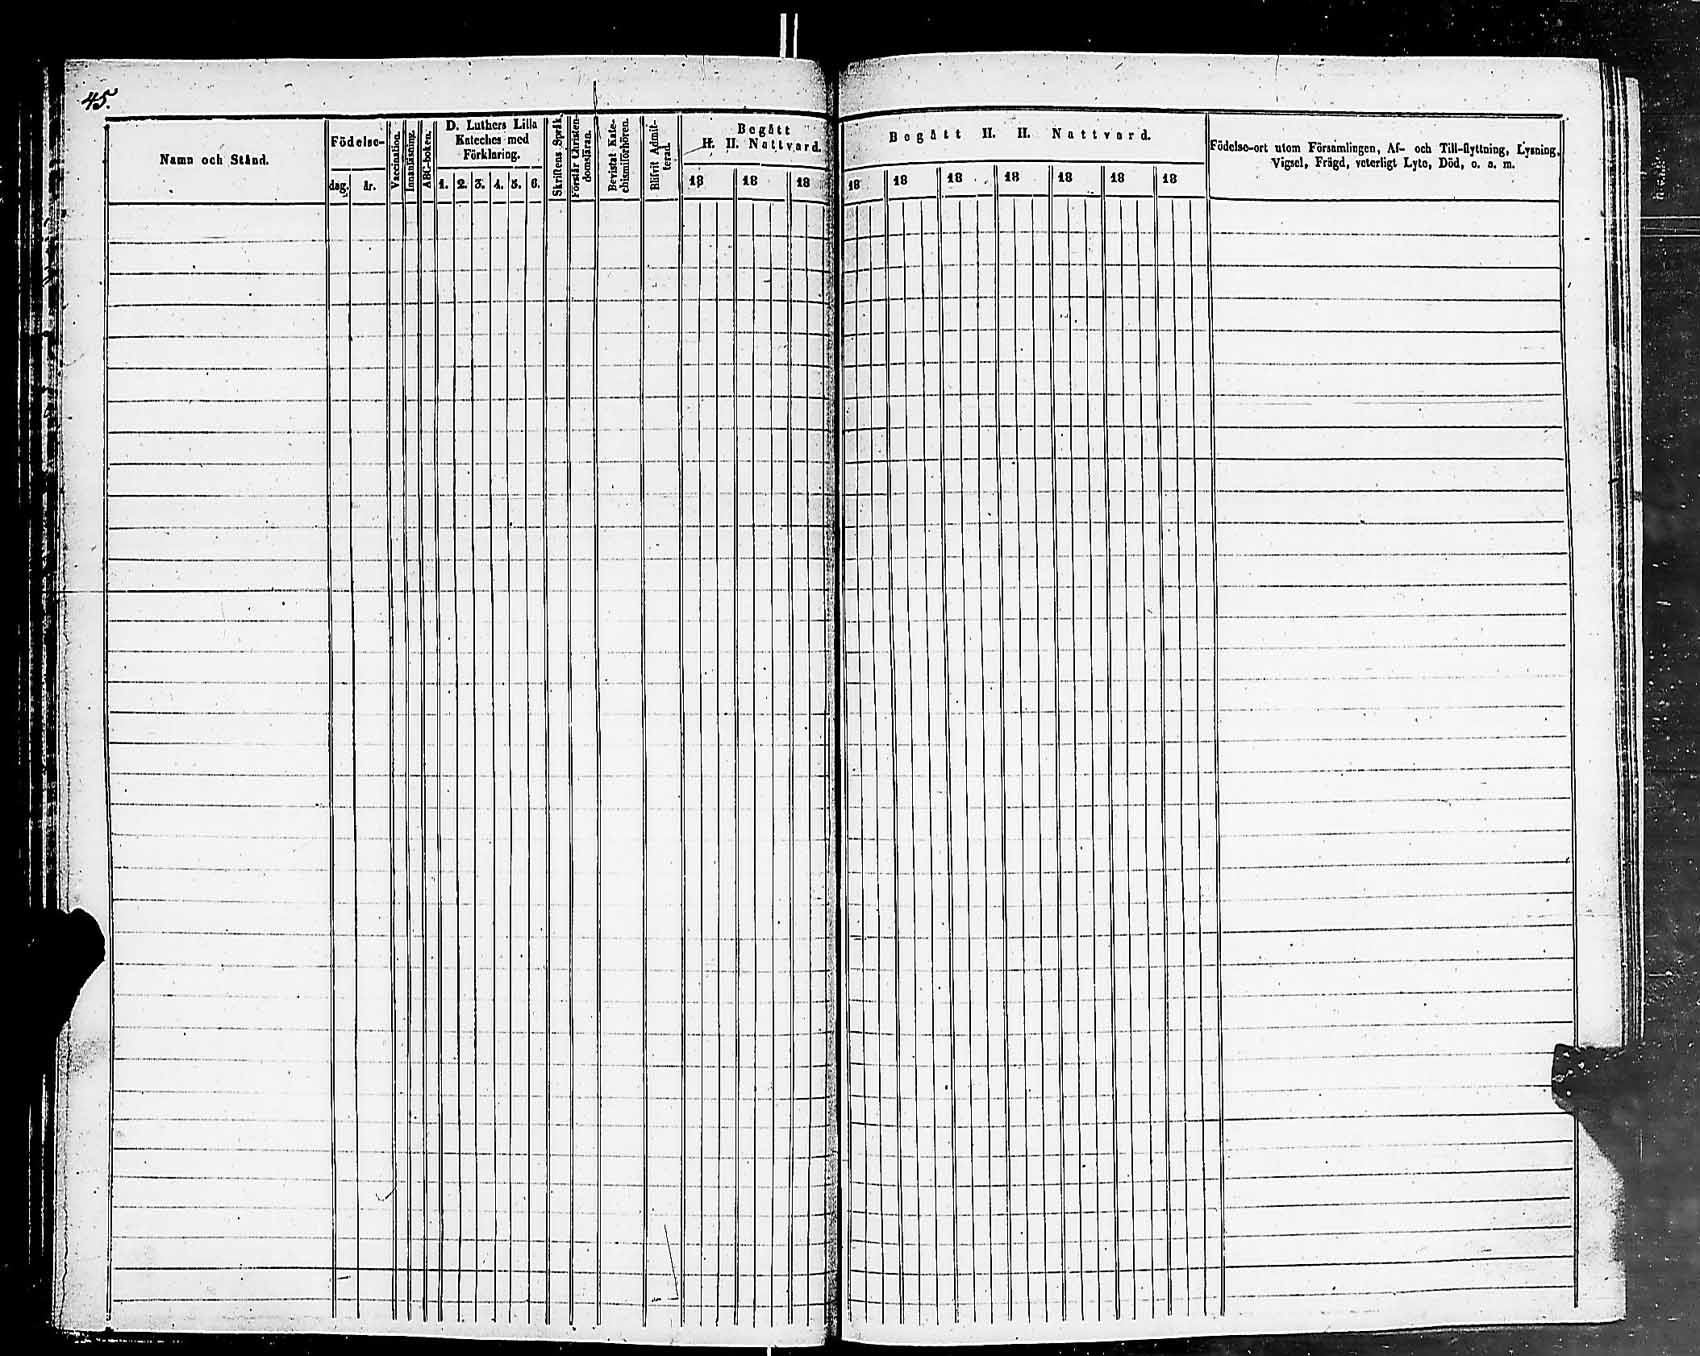 45.
Namn och Stånd.
Födelse-
dag.
år.
Vaccination.
Innanläsning.
ABC-boken.
D. Luthers Lilla
Kateches med
Förklaring.
1. 2. 3. 4. 5. 6.
Skriftens Språk.
Förstår Christen-
domsläran.
Bevistat Kate-
chismiförhören.
Blifvit Admit-
terad.
Begått
H. H. Nattvard.
18 18 18
Begått H. H. Nattvard.
18 18 18 18 18 18 18
Födelse-ort utom Församlingen, Af- och Till-flyttning, Lysning,
Vigsel, Frägd, veterligt Lyte, Död, o. s. m.